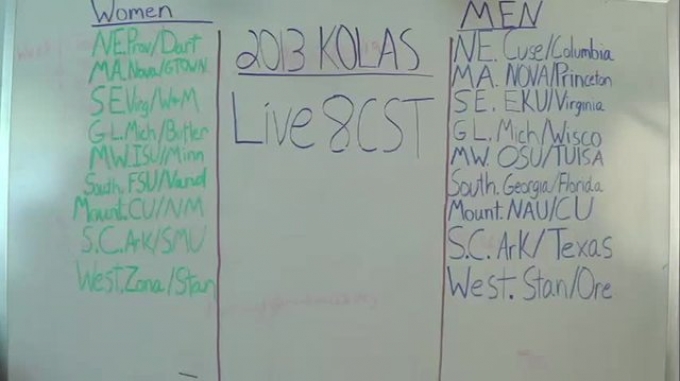 Women
NE.Prov/Dart
MA.Nova/GTOWN
SE.Virg/W&M
GL.Mich/Butler
MW.ISU/Minn
South.FSU/Vand
Mount.CU/NM
S.C.ArK/SMU
West.Zona/Stan
2013 KOLAS
Live 8CST
MEN
NE. Cuse/Columbia
MA. NOVA/Princeton
SE. EKU/Virginia
GL. Mich/Wisco
MW. OSU/TUlSA
South. Georgia/Florida
Mount. NAU/CU
S.C. ArK/Texas
West. Stan/Ore